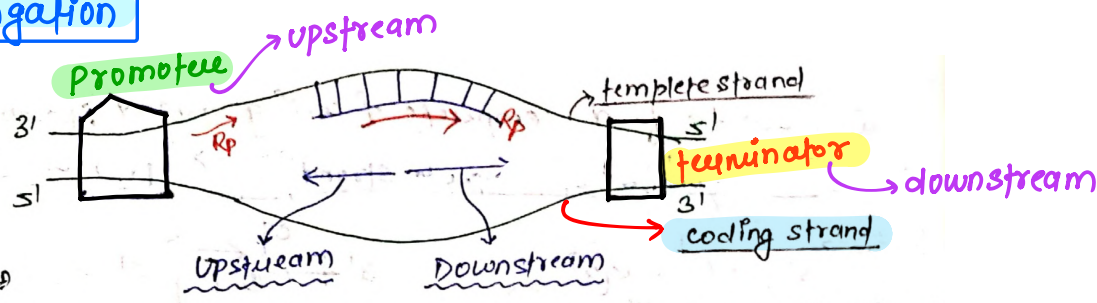 gation
upstream
Promotere
templete strand
3'
Rp
Rp
5'
terminator
downstream
5'
3'
coding strand
Upstream
Downstream